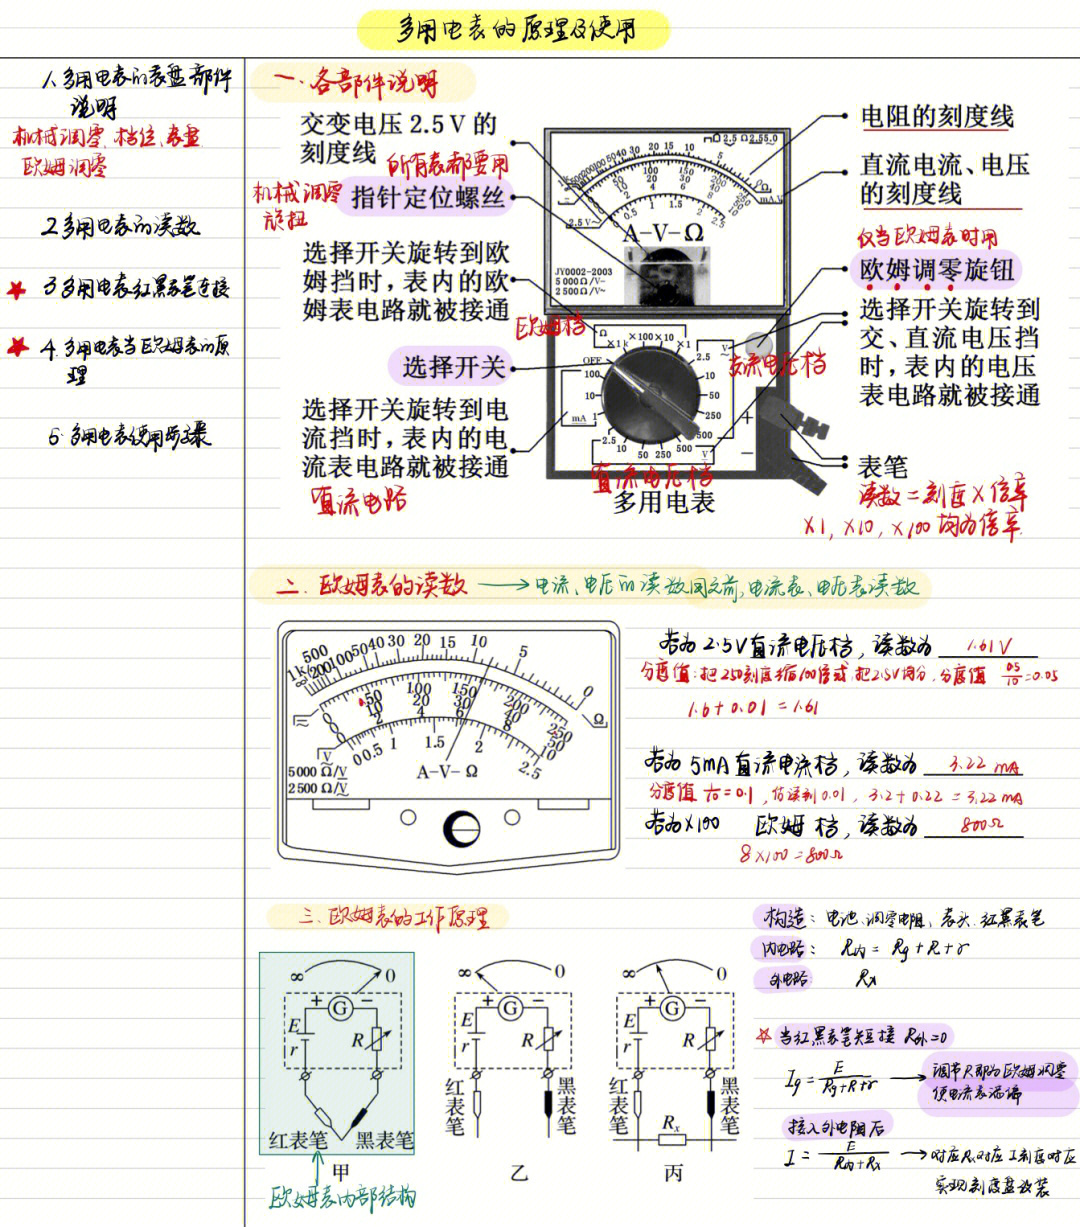 多用电表的原理及使用
1.多用电表的表盘部件
说明
机械调零、档位、表盘
欧姆调零
2.多用电表的读数
3.多用电表红黑表笔连接
4.多用电表当欧姆表的原
理
5.多用电表使用步骤
一.各部件说明
交变电压 2.5 V 的
刻度线
所有表都要用
机械调零
旋扭
指针定位螺丝
选择开关旋转到欧
姆挡时，表内的欧
姆表电路就被接通
欧姆档
选择开关
选择开关旋转到电
流挡时，表内的电
流表电路就被接通
直流电路
电阻的刻度线
直流电流、电压
的刻度线
仅当欧姆表时用
欧姆调零旋钮
选择开关旋转到
交、直流电压挡
时，表内的电压
表电路就被接通
交流电压档
表笔
直流电压档
多用电表
A-V-Ω
JY0002-2003
5 000 Ω/V-
2 500 Ω/V~
Ω ×1k ×100 ×10 ×1
OFF
100
10
1
mA
2.5 10 50 250 500 V
2.5
10
50
250
500
V~
+
−
读数=刻度×倍率
×1, ×10, ×100 均为倍率.
二.欧姆表的读数 → 电流、电压的读数同之前,电流表、电压表读数
∞ 1k 500 200 100 50 40 30 20 15 10 5 0 Ω
0 50 100 150 200 250
0 10 20 30 40 50
0 2 4 6 8 10
0 0.5 1 1.5 2 2.5
V~
5 000 Ω/V
2 500 Ω/V
A-V-Ω
若为 2.5V直流电压档，读数为 1.61V
分度值:把250刻度缩100倍或把2.5V均分,分度值 0.5/10=0.05
1.6+0.01=1.61
若为 5mA直流电流档，读数为 3.22 mA
分度值 1/10=0.1，估读到0.01，3.2+0.22=3.22 mA
若为×100 欧姆档，读数为 800Ω
8×100=800Ω
三.欧姆表的工作原理
∞ 0
+ G −
E
r
R
红表笔 黑表笔
甲
欧姆表内部结构
∞ 0
+ G −
E
r
R
红表笔
黑表笔
乙
∞ 0
+ G −
E
r
R
红表笔
黑表笔
Rx
丙
构造: 电池、调零电阻、表头、红黑表笔
内电路: R内=Rg+R+r
外电路 Rx
当红黑表笔短接 R外=0
Ig=E/(Rg+R+r) → 调节R即为欧姆调零
使电流表满偏
接入外电阻后
I=E/(R内+Rx) → 对应Rx对应I刻度对应
实现刻度盘改装